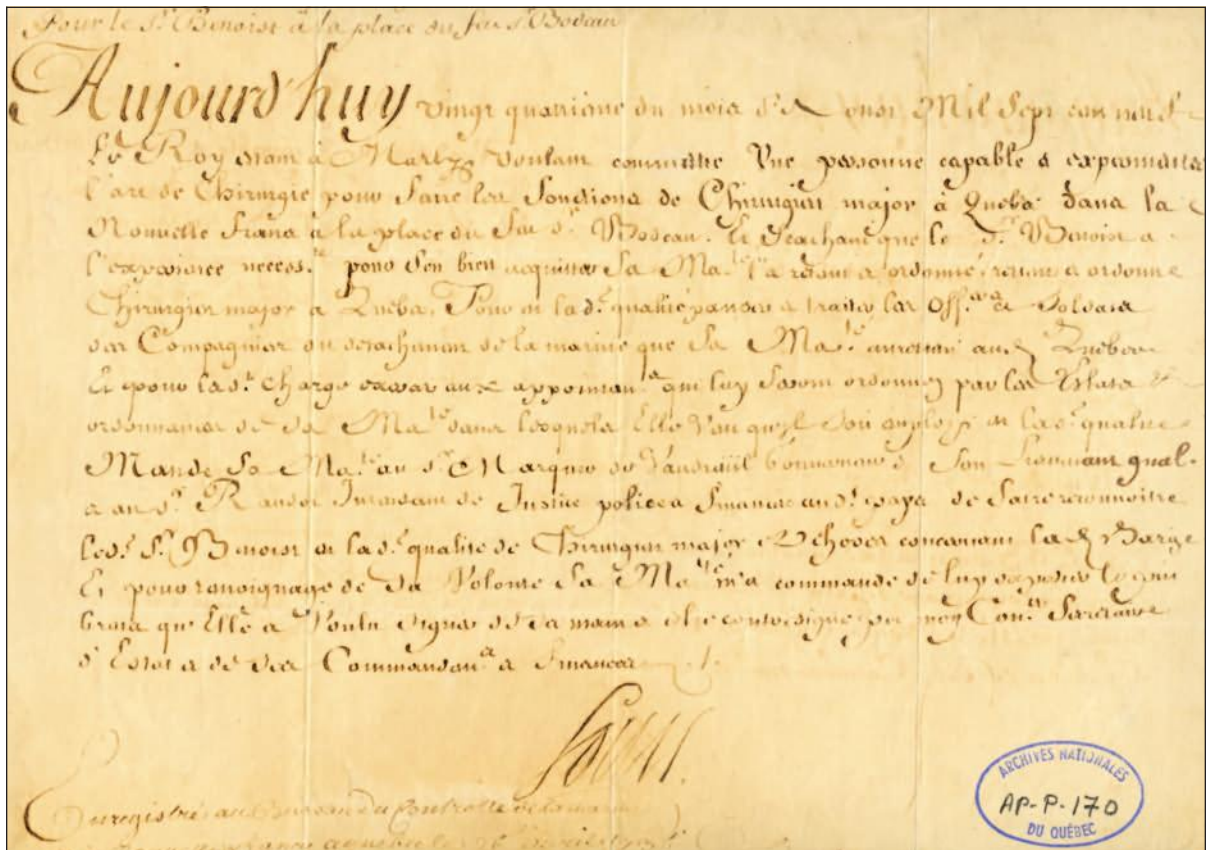 Pour le Sr. Benoist à la place du feu Sr. Bodeau
Aujourd'huy vingt quatriéme du mois d'Aoust Mil Sept cent neuf
Le Roy estant à Marly voulant commettre Une personne capable & experimentée
l'art de Chirurgie pour faire les fonctions de Chirurgien major à Quebec dans la
Nouvelle France à la place du feu Sr. Bodeau. Et Sçachant que le Sr. Benoist a
l'experience necessre. pour s'en bien acquitter Sa Maté. l'a retenu & ordonné, retient & ordonne
Chirurgien major à Quebec, Pour en lad. qualité panser & traiter les Offers. & Soldats
des Compagnies du detachement de la marine que Sa Maté. entretient aud. Quebec
Et pour lad. charge aux appointemens. qui luy seront ordonnez par les Estats &
ordonnances de Sa Maté. dans lesquels Elle veut qu'il soit employé en lad. qualité
Mande Sa Maté. au Sr. Marquis de Vaudreüil Gouverneur & Son Lieutenant gnal.
& au Sr. Raudot Intendant de Justice police & finances aud. pays de faire reconnoitre
led. Sr. Benoist en lad. qualité de Chirurgien major Es choses concernant lad. Charge
Et pour temoignage de Sa Volonté Sa Maté. m'a commandé de luy expedier le present
brevet que Elle a Voulu signer de Sa main & estre contresigné par moy Coner. Secretaire
d'Estat & de Ses Commandens. & finances
Louis
Enregistré au Bureau du Controlle de la marine
ARCHIVES NATIONALES
AP-P-170
DU QUÉBEC